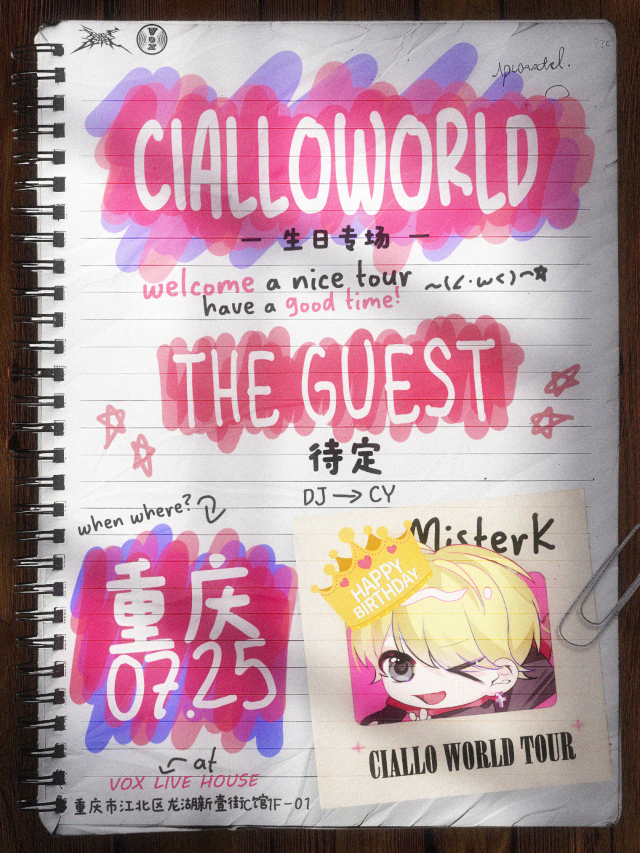 VOX
CIALLOWORLD
— 生日专场 —
welcome a nice tour ~(∠·ω<)~☆
have a good time!
THE GUEST
待定
DJ→CY
when where?
重庆
07.25
at
VOX LIVE HOUSE
重庆市江北区龙湖新壹街C馆1F-01
MisterK
HAPPY
BIRTHDAY
CIALLO WORLD TOUR